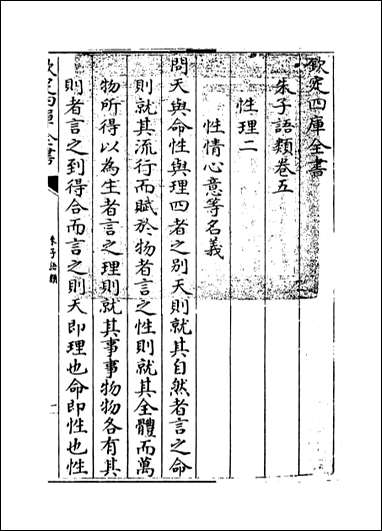 欽定四庫全書
朱子語類卷五
性理二
性情心意等名義
問天與命性與理四者之别天則就其自然者言之命
則就其流行而賦於物者言之性則就其全體而萬
物所得以為生者言之理則就其事事物物各有其
則者言之到得合而言之則天即理也命即性也性
欽定四庫全書
朱子語類
一